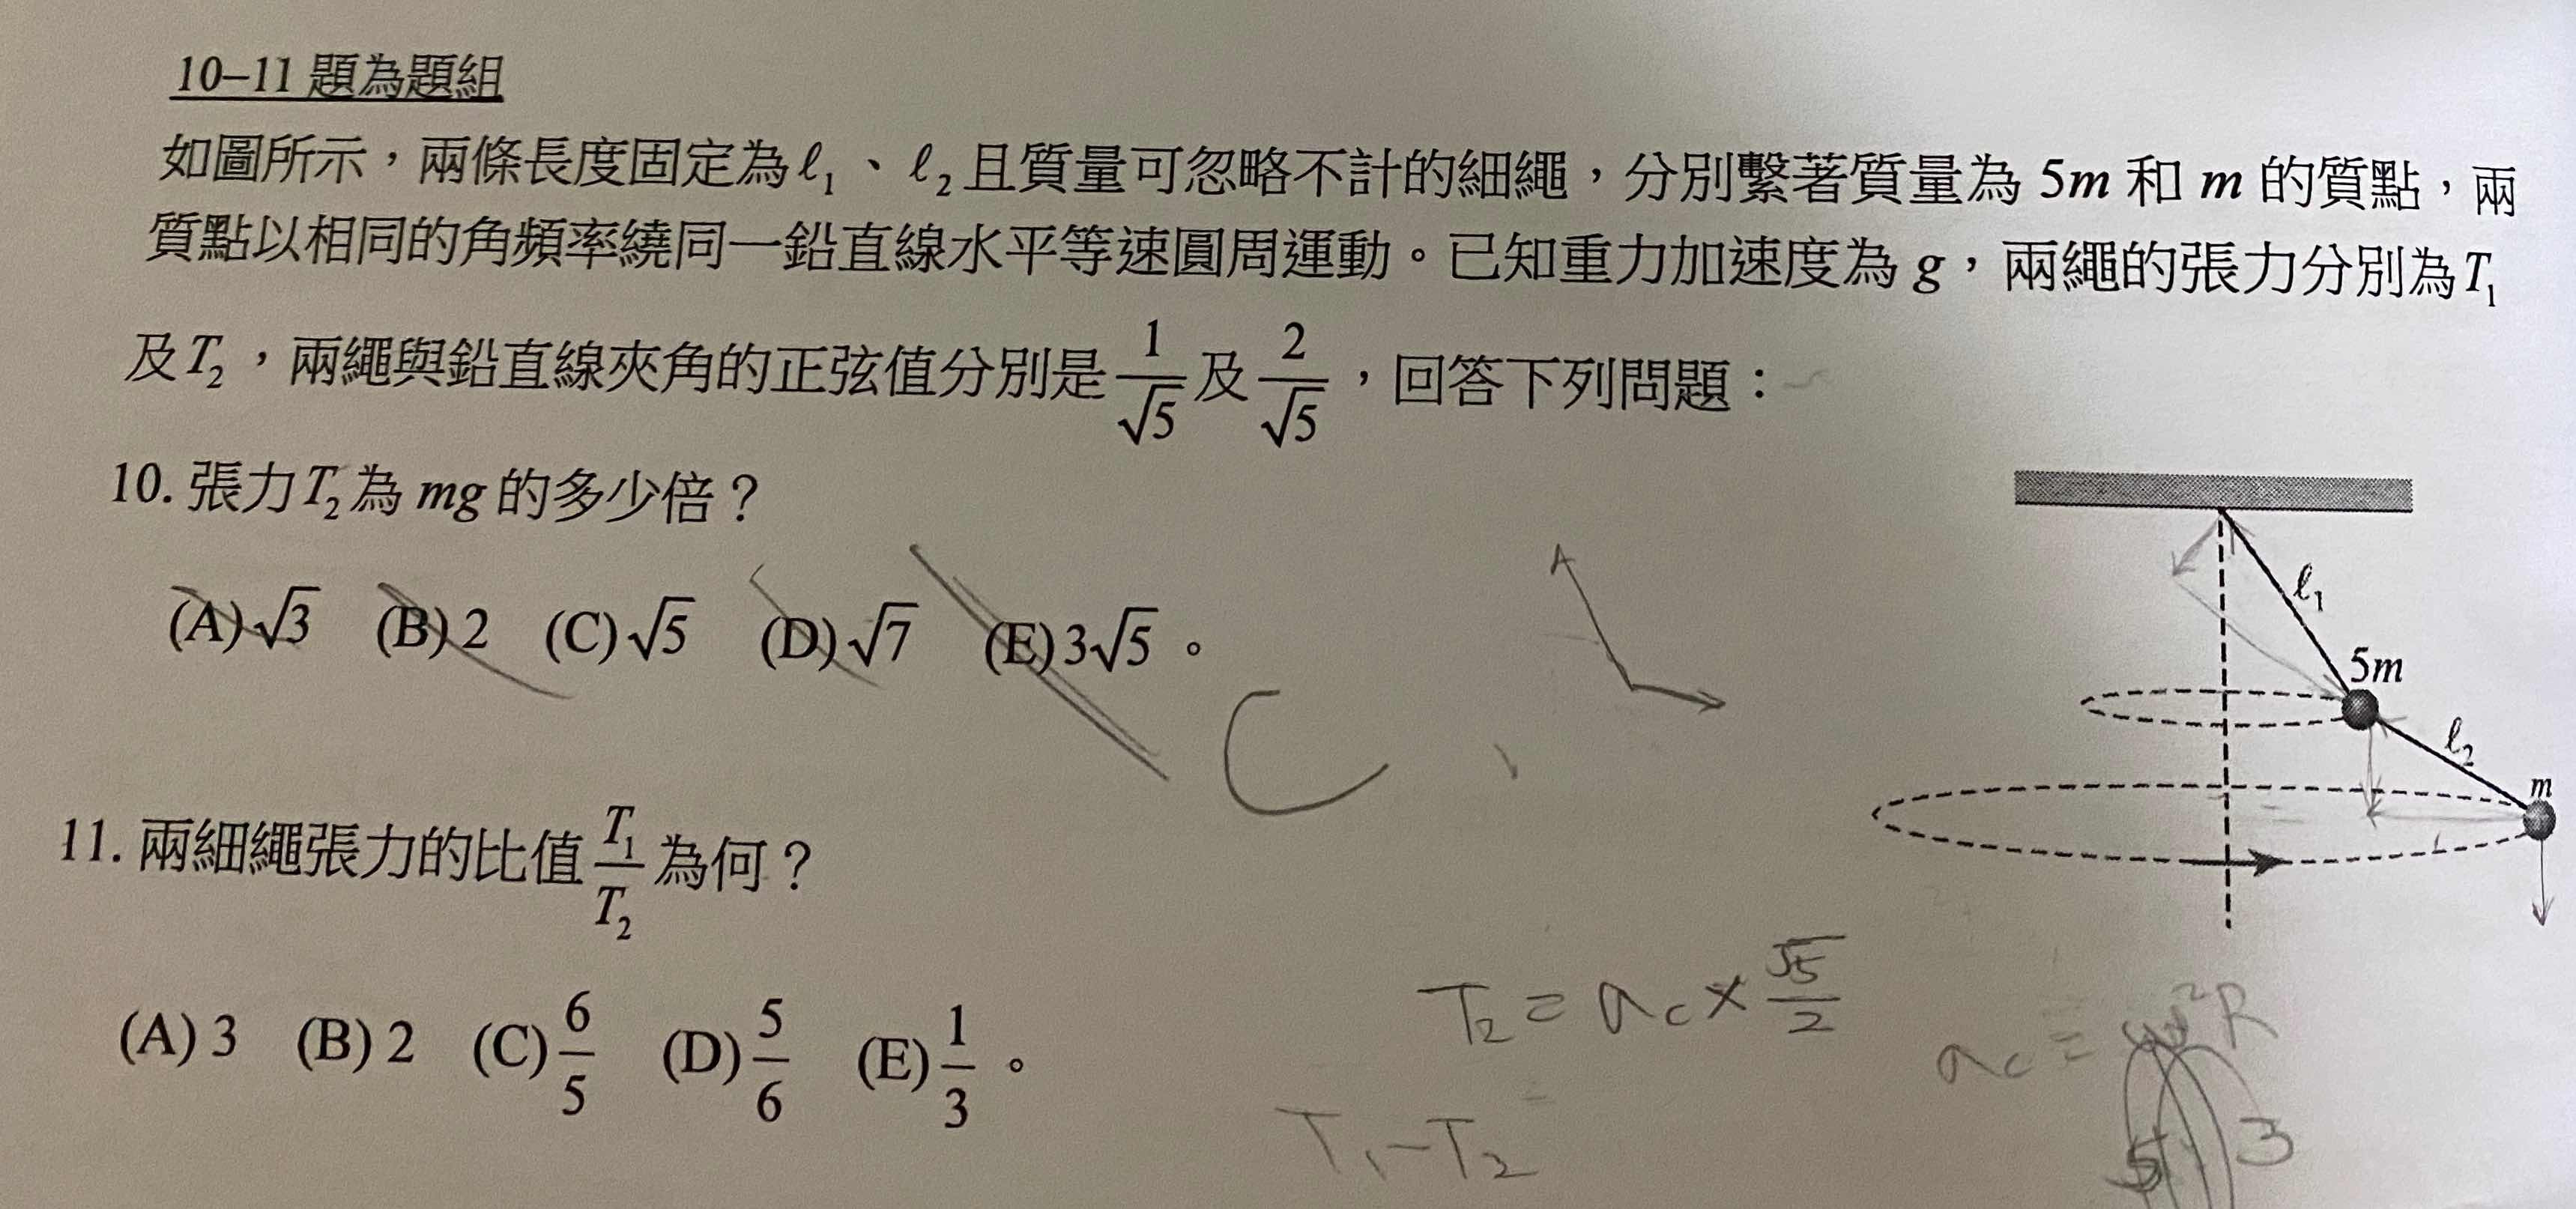 10–11 題為題組
如圖所示，兩條長度固定為ℓ₁、ℓ₂且質量可忽略不計的細繩，分別繫著質量為 5m 和 m 的質點，兩
質點以相同的角頻率繞同一鉛直線水平等速圓周運動。已知重力加速度為 g，兩繩的張力分別為T₁
及T₂，兩繩與鉛直線夾角的正弦值分別是 1/√5 及 2/√5，回答下列問題：
10. 張力T₂為 mg 的多少倍？
(A)√3 (B) 2 (C)√5 (D)√7 (E) 3√5。
C
11. 兩細繩張力的比值 T₁/T₂ 為何？
(A) 3 (B) 2 (C) 6/5 (D) 5/6 (E) 1/3。
ℓ₁
5m
ℓ₂
m
T₂ = a_c × √5/2
a_c = ω²R
T₁ − T₂
5
3